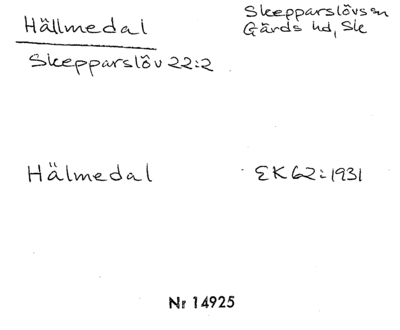 Hällmedal
Skepparslövs sn
Gärds hd, Sk
Skepparslöv 22:2
Hälmedal
EK62:1931
Nr 14925